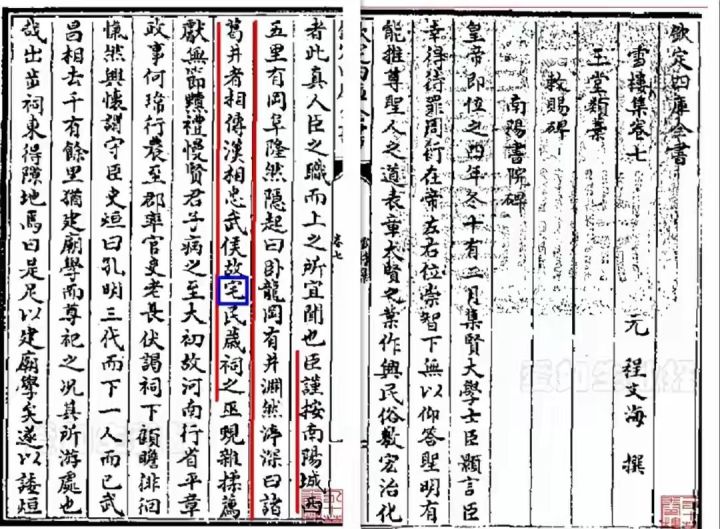 欽定四庫全書
雪樓集卷七
元 程文海 撰
玉堂類藁
敕賜碑
南陽書院碑
皇帝即位之四年冬十有二月集賢大學士臣顥言臣
幸得待罪周行在帝左右位崇智下無以仰答聖明有
能推尊聖人之道表章大賢之業作興民俗敷宏治化
卷七
者此真人臣之職而上之所宜聞也臣謹按南陽城西
五里有岡阜隆然隱起曰卧龍岡有井淵然渟深曰諸
葛井者相傳漢相忠武侯故宅民歲祠之巫覡雜揉薦
獻無節黷禮慢賢君子病之至大初故河南行省平章
政事何瑋行農至郡率官吏老長伏謁祠下顧瞻徘徊
慨然興懷謂守臣史烜曰孔明三代而下一人而已武
昌相去千有餘里猶建廟學而尊祀之况其所游處也
哉出步祠東得隙地焉曰是足以建廟學矣遂以諉烜